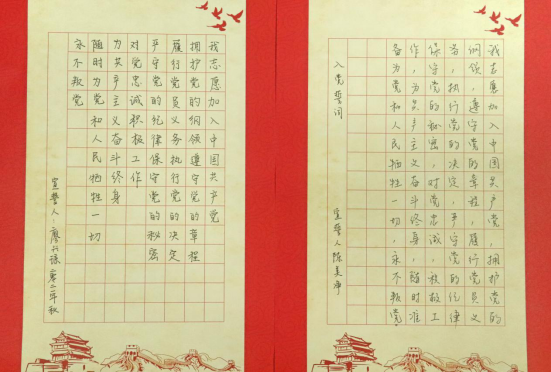 我志愿加入中国共产党
拥护党的纲领遵守党的章程
履行党员义务执行党的决定
严守党的纪律保守党的秘密
对党忠诚积极工作
为共产主义奋斗终身
随时为党和人民牺牲一切
永不叛党
宣誓人:廖
我志愿加入中国共产党,拥护党的
纲领,遵守党的章程,履行党员义
务,执行党的决定,严守党的纪律
保守党的秘密,对党忠诚,积极工
作,为共产主义奋斗终身,随时准
备为党和人民牺牲一切,永不叛党
入党誓词
宣誓人陈美净